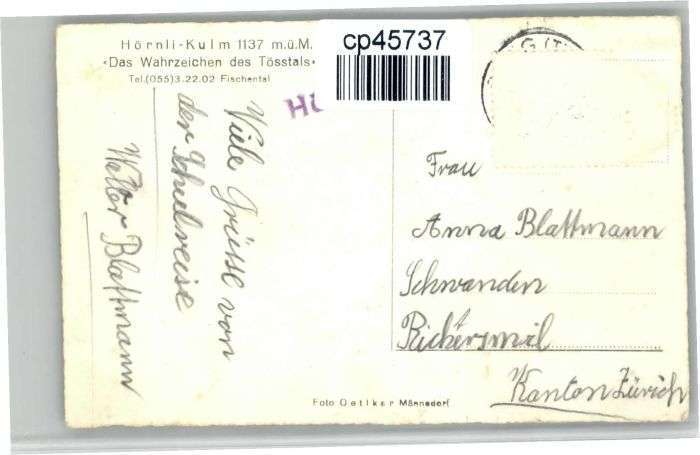 Hörnli-Kulm 1137 m.ü.M.
«Das Wahrzeichen des Tösstals»
Tel.(055)3.22.02 Fischental
cp45737
Viele Grüsse von
der Schulreise
Walter Blattmann
Frau
Anna Blattmann
Schwanden
Richterswil
Kanton Zürich
Foto Oetiker Männedorf